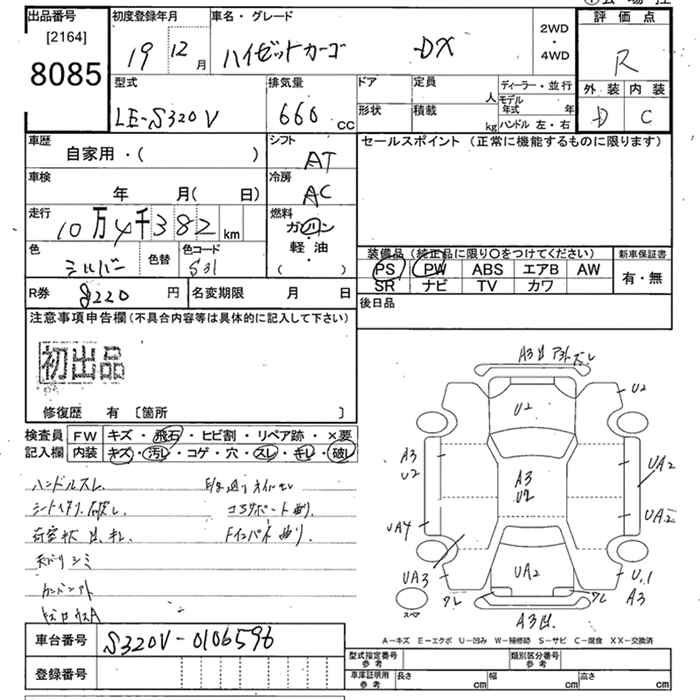 出品番号
[2164]
8085
初度登録年月
19 12月
車名・グレード
ハイゼットカーゴ DX
2WD
・
4WD
評価点
R
外装 内装
D C
型式
LE-S320V
排気量
660 CC
ドア
定員 人
形状
積載 kg
ディーラー・並行
モデル年式 年
ハンドル 左・右
車歴
自家用・( )
シフト
AT
車検
年 月( 日)
冷房
AC
走行
10万4千382km
燃料
ガソリン
軽・油
( )
色
シルバー
色替
色コード
S31
R券 8220 円
名変期限 月 日
セールスポイント (正常に機能するものに限ります)
装備品 (純正品に限り○をつけてください)
PS PW ABS エアB AW
SR ナビ TV カワ
新車保証書
有・無
後日品
注意事項申告欄(不具合内容等は具体的に記入して下さい)
初出品
修復歴 有 〔箇所 〕
検査員記入欄
FW キズ・飛石・ヒビ割・リペア跡・×要
内装 キズ・汚レ・コゲ・穴・スレ・キレ・破レ
ハンドルスレ
天バリシミ
コアサポート曲り
Fインパネ曲り
U2
U2
A3
U2
A3
U2
UA2
UA2
UA4
UA3
UA2
U.1
A3
スペア
A-キズ E-エクボ U-凹み W-補修跡 S-サビ C-腐食 XX-交換済
車台番号 S320V-0106596
登録番号
型式指定番号 参考
類別区分番号 参考
車庫証明用 参考
長さ cm
幅 cm
高さ cm